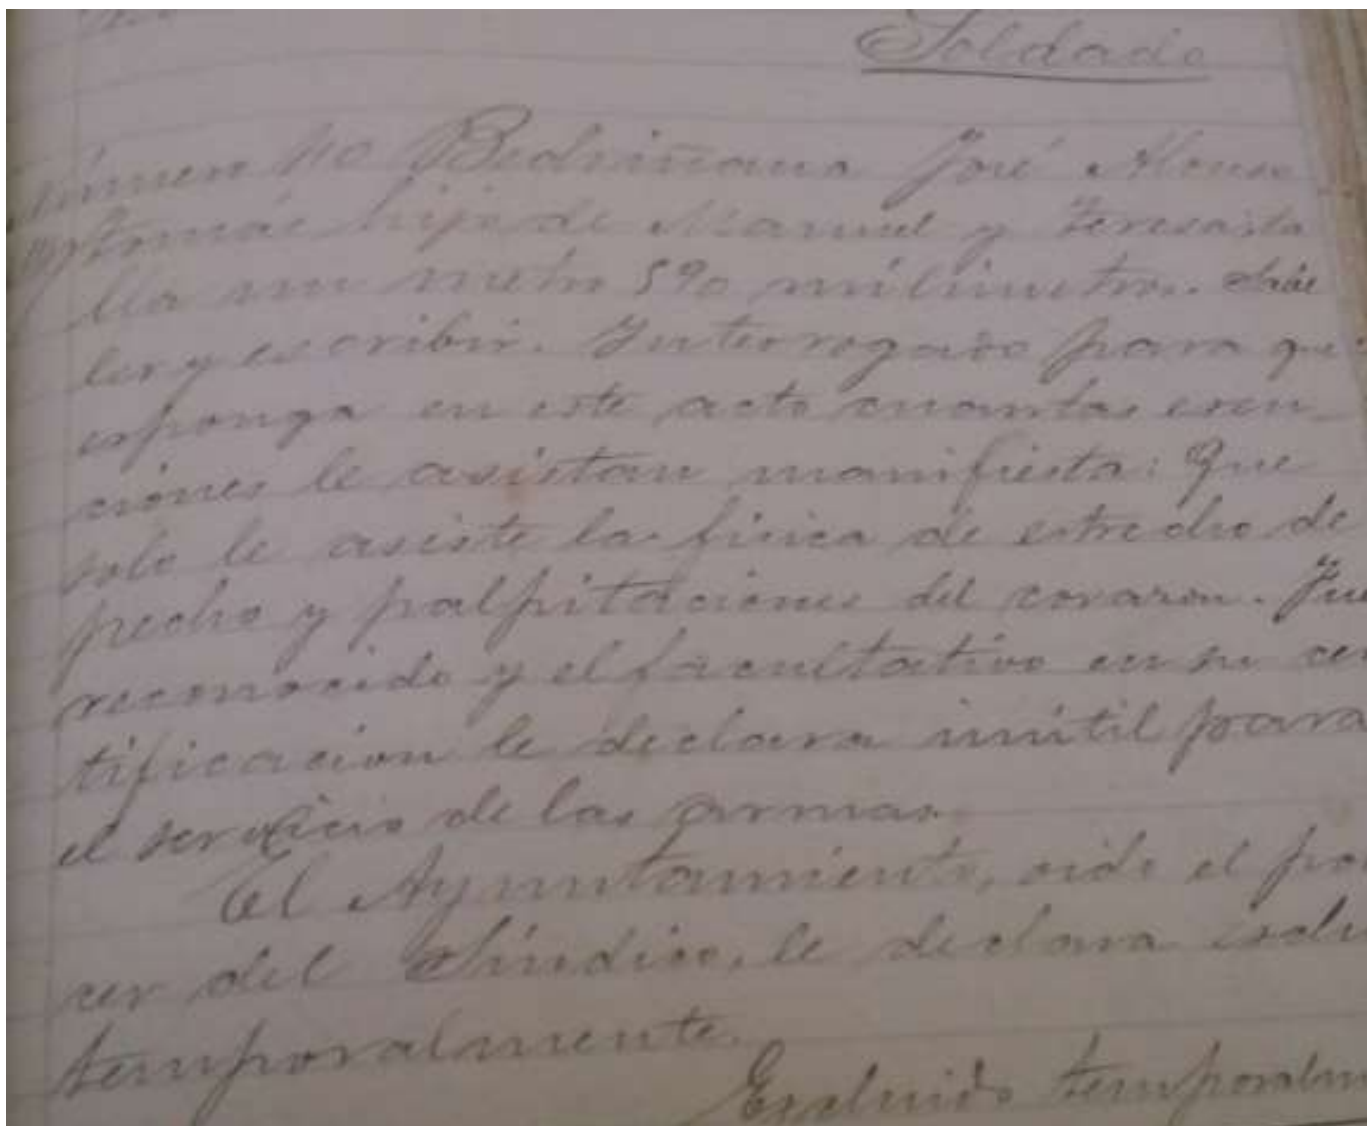 Soldado
número 110 Bedriñana José Alonso
Tomás hijo de Manuel y Teresa; ta
lla un metro 590 milimetros. Sabe
ler y escribir. Interrogado para que
esponga en este acto cuantas esen-
ciones le asistan manifiesta: Que
solo le asiste la fisica de estrecho de
pecho y palpitaciones del corazon. Fue
reconocido y el facultativo en su cer
tificacion le declara inútil para
el servicio de las armas.
El Ayuntamiento, oido el pare
cer del Síndico, le declara esclu
temporalmente.
Escluido temporalm